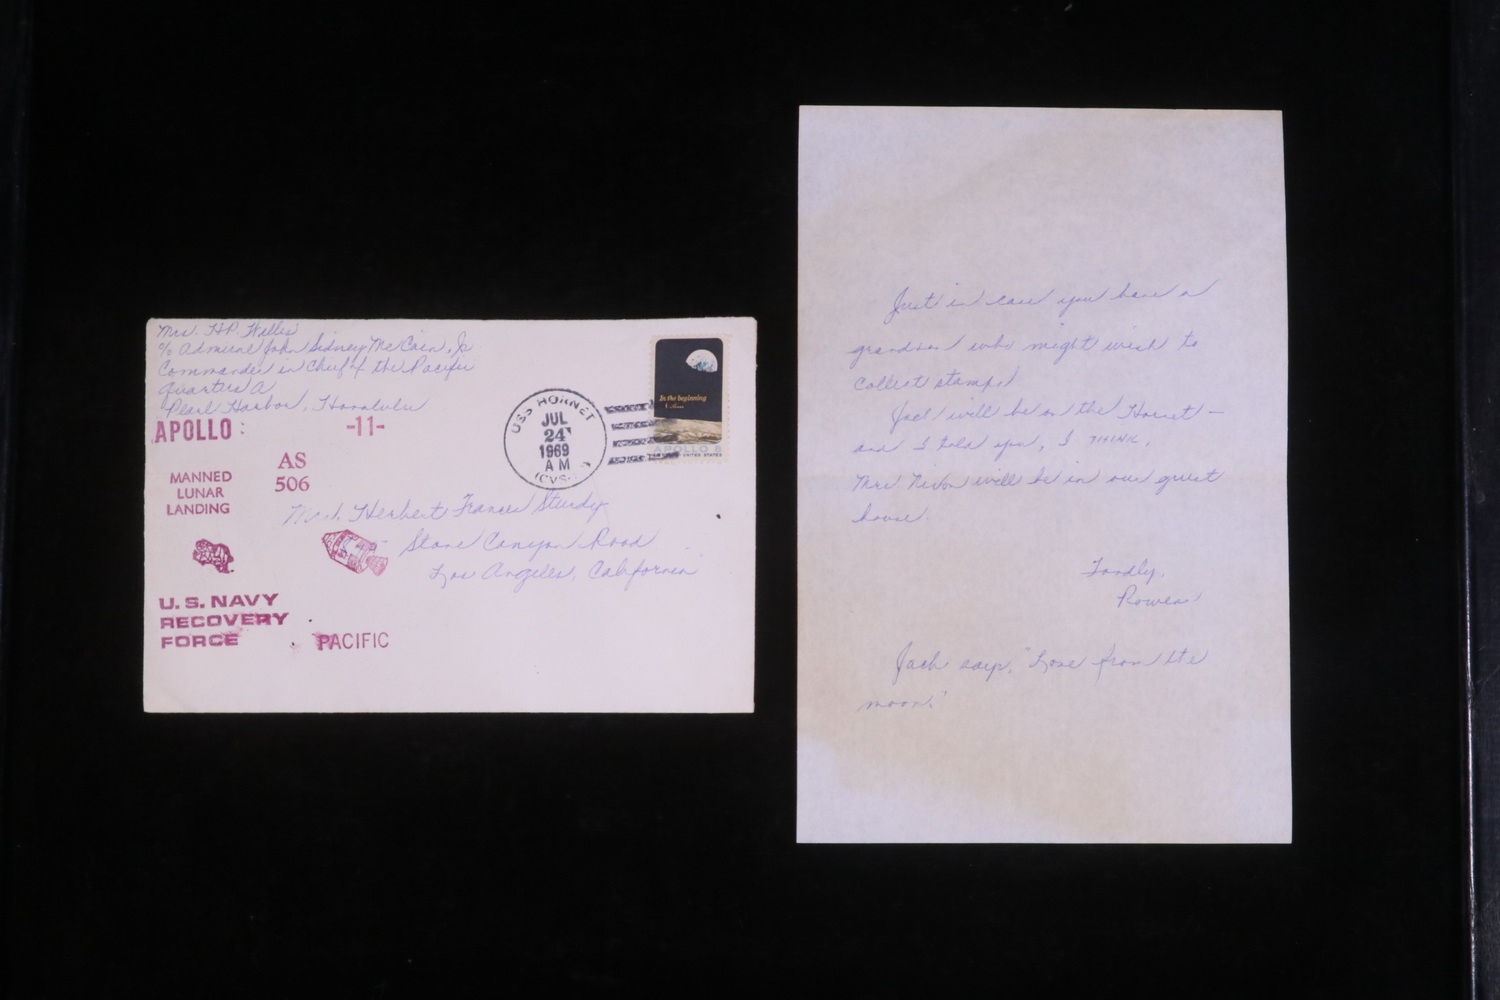 Mrs. H.P. Willis
c/o Admiral John Sidney McCain, Jr
Commander in Chief of the Pacific
Quarters A
Pearl Harbor, Honolulu
APOLLO : -11-
AS
506
MANNED
LUNAR
LANDING
U.S. NAVY
RECOVERY
FORCE PACIFIC
USS HORNET
JUL
24
1969
AM
(CVS-
In the beginning
APOLLO 8
UNITED STATES
Mrs. Herbert Francis Sturdy
Stone Canyon Road
Los Angeles, California
Just in case you have a
grandson who might wish to
collect stamps
Jack will be on the Hornet -
and I told you, I THINK,
Mrs Nixon will be in our guest
house.
Fondly,
Rowena
Jack says, "Love from the
moon."